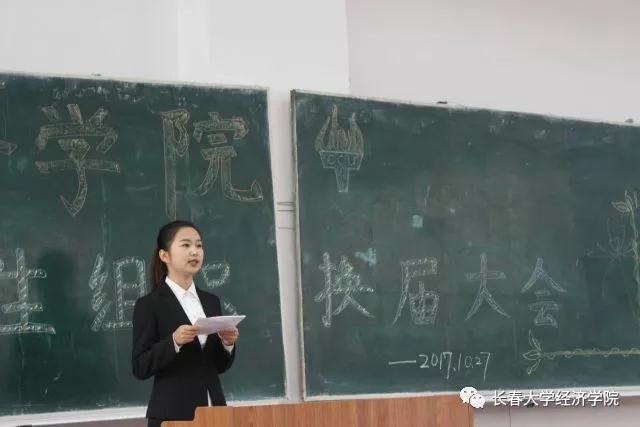 学院
生组织
换届大会
—2017.10.27
长春大学经济学院